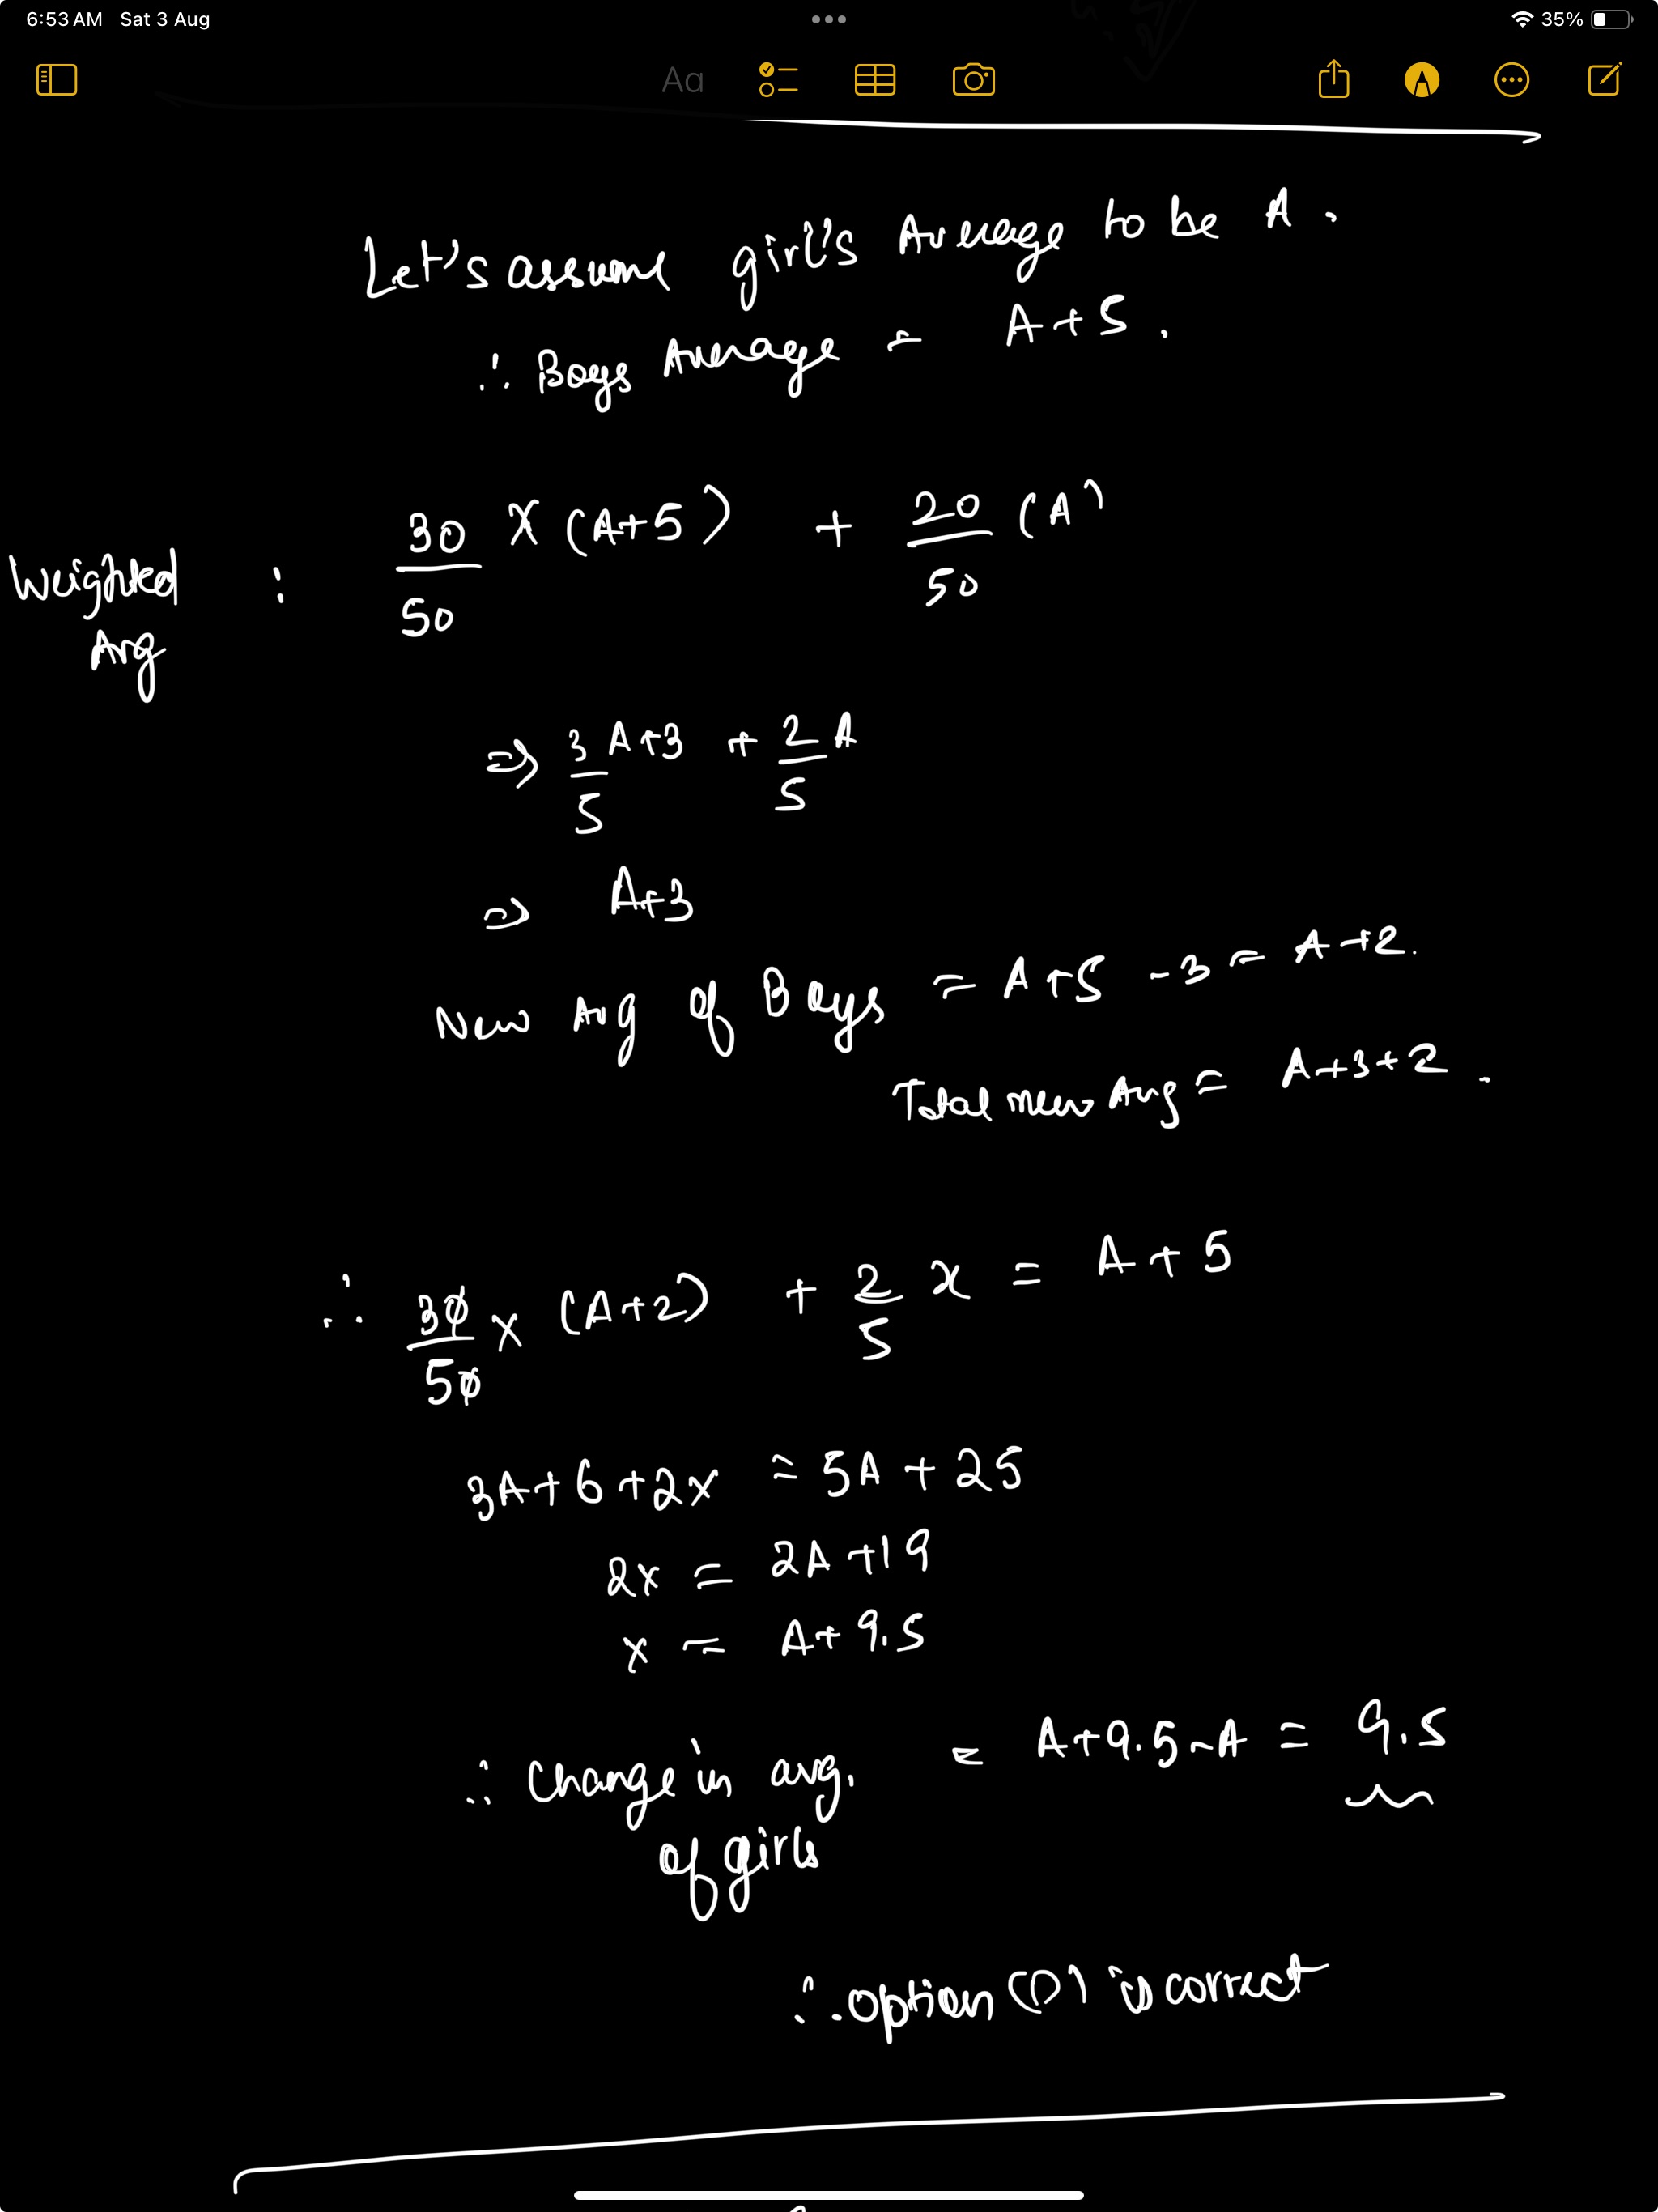 6:53 AM Sat 3 Aug
35%
Aa
Let's assume girl's Average to be A.
∴ Boys Average = A+5.
Weighted Avg : 30/50 X (A+5) + 20/50 (A)
⇒ 3/5 A+3 + 2/5 A
⇒ A+3
New Avg of Boys = A+5 -3 = A+2.
Total new Avg = A+3+2.
∴ 30/50 x (A+2) + 2/5 x = A+5
3A+6+2x = 5A+25
2x = 2A+19
x = A+9.5
∴ Change in avg. of girls = A+9.5-A = 9.5
∴ option (D) is correct